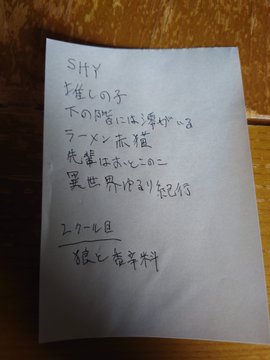 SHY
推しの子
下の階には澪がいる
ラーメン赤猫
先輩はおとこのこ
異世界ゆるり紀行
2クール目
狼と香辛料